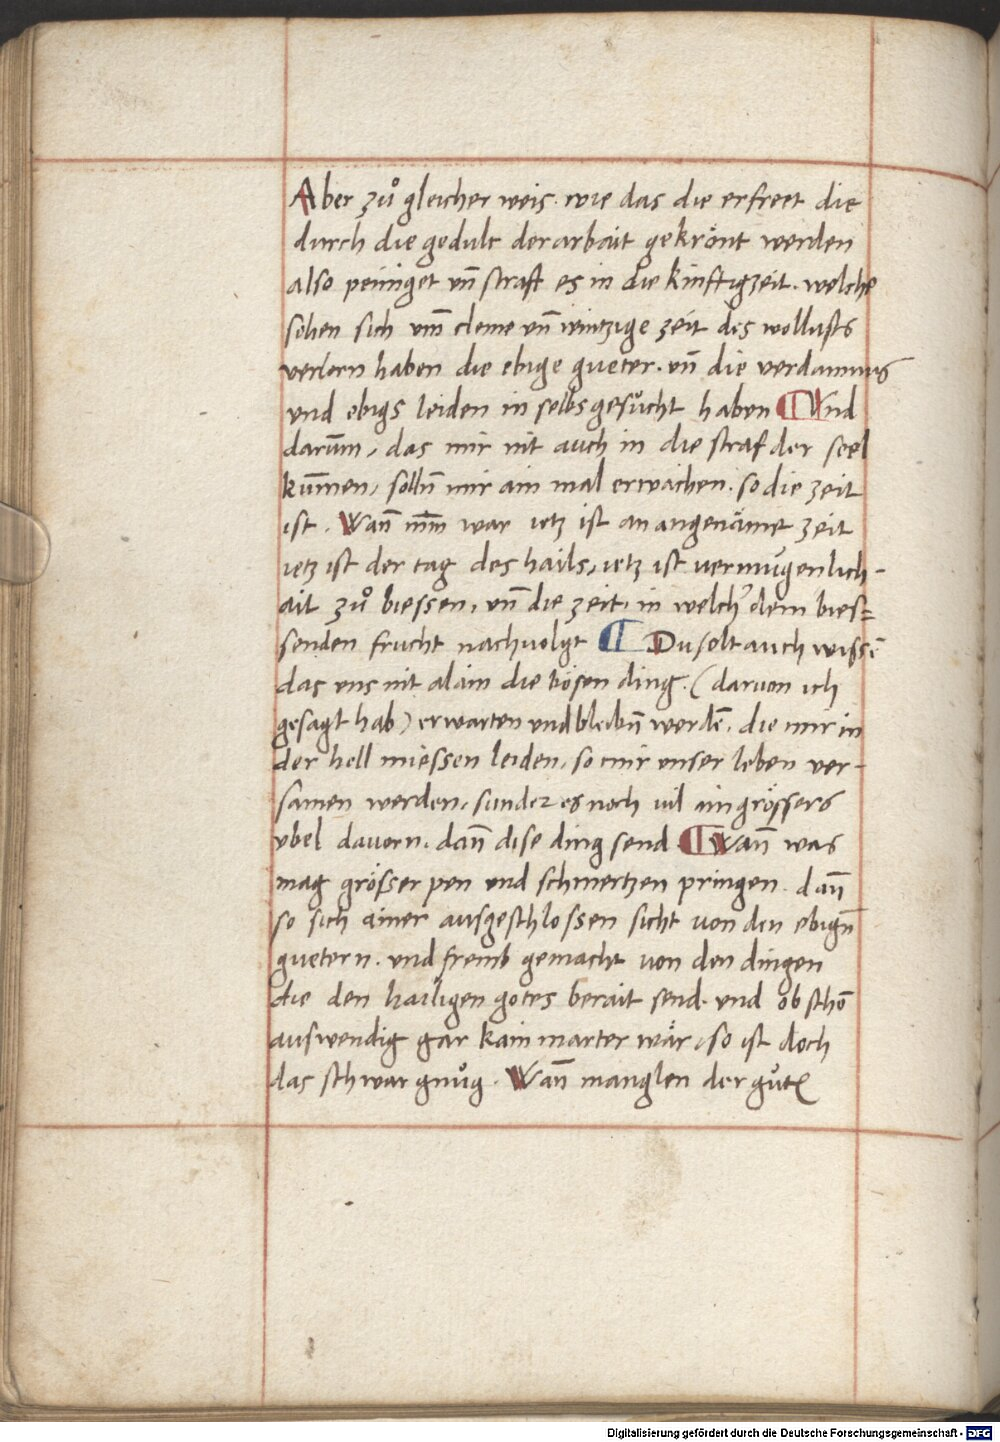 Aber zů gleicher weis. wie das die erfreet die
durch die gedult der arbait gekrönt werden
also peiniget vn̄ straft es in die kinftigzeit. welche
sehen sich vm̄ cleine vn̄ wintzige zeit des wollusts
verlern haben die ebige gueter. vn̄ die verdamnus
vnd ebigs leiden in selbs gesůcht haben ¶ Vnd
darum̄, das mir nit auch in die straf der seel
kum̄en, solln̄ mir ain mal erwachen. so die zeit
ist. Wan̄ nim̄ war ietz ist an angenäme zeit
ietz ist der tag des hails, ietz ist vermůgenlich-
ait zů biessen, vn̄ die zeit, in welcher dem bies=
senden frucht nachuolgt ¶ Du solt auch wissn̄
das vns nit alain die bösen ding. (daruon ich
gesagt hab) erwarten vnd bleibn̄ werdē. die mir in
der hell miessen leiden. so mir vnser leben ver-
samen werden, sunder es noch vil im grössers
vbel dauorn. dan̄ dise ding send ¶ Wan̄ was
mag grösser pen vnd schmertzen pringen. dan̄
so sich ainer ausgeschlossen sicht von den ebign̄
guetern. vnd fremb gemacht von den dingen
die den hailigen gotes berait send. vnd ob schō
auswendig gar kain marter wär, so ist doch
das schwar gnůg. Wan̄ manglen der gůtn̄